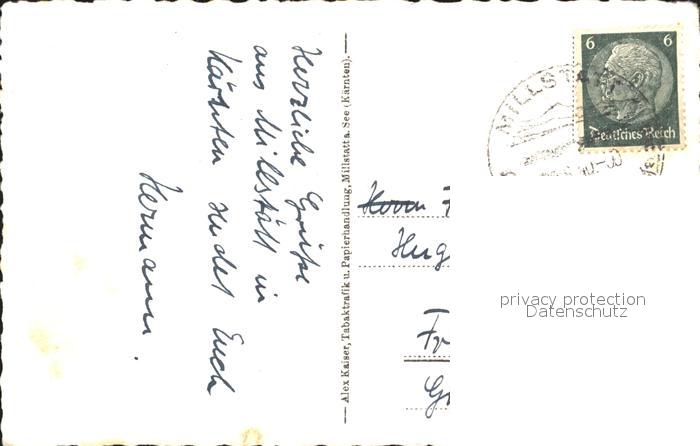 Herzliche Grüße
aus Millstatt in
Kärnten sendet Euch
Hermann.
Alex Kaiser, Tabaktrafik u. Papierhandlung, Millstatt a. See (Kärnten).
6 6
Deutsches Reich
MILLST
Herrn
Hug
Fr
privacy protection
Datenschutz